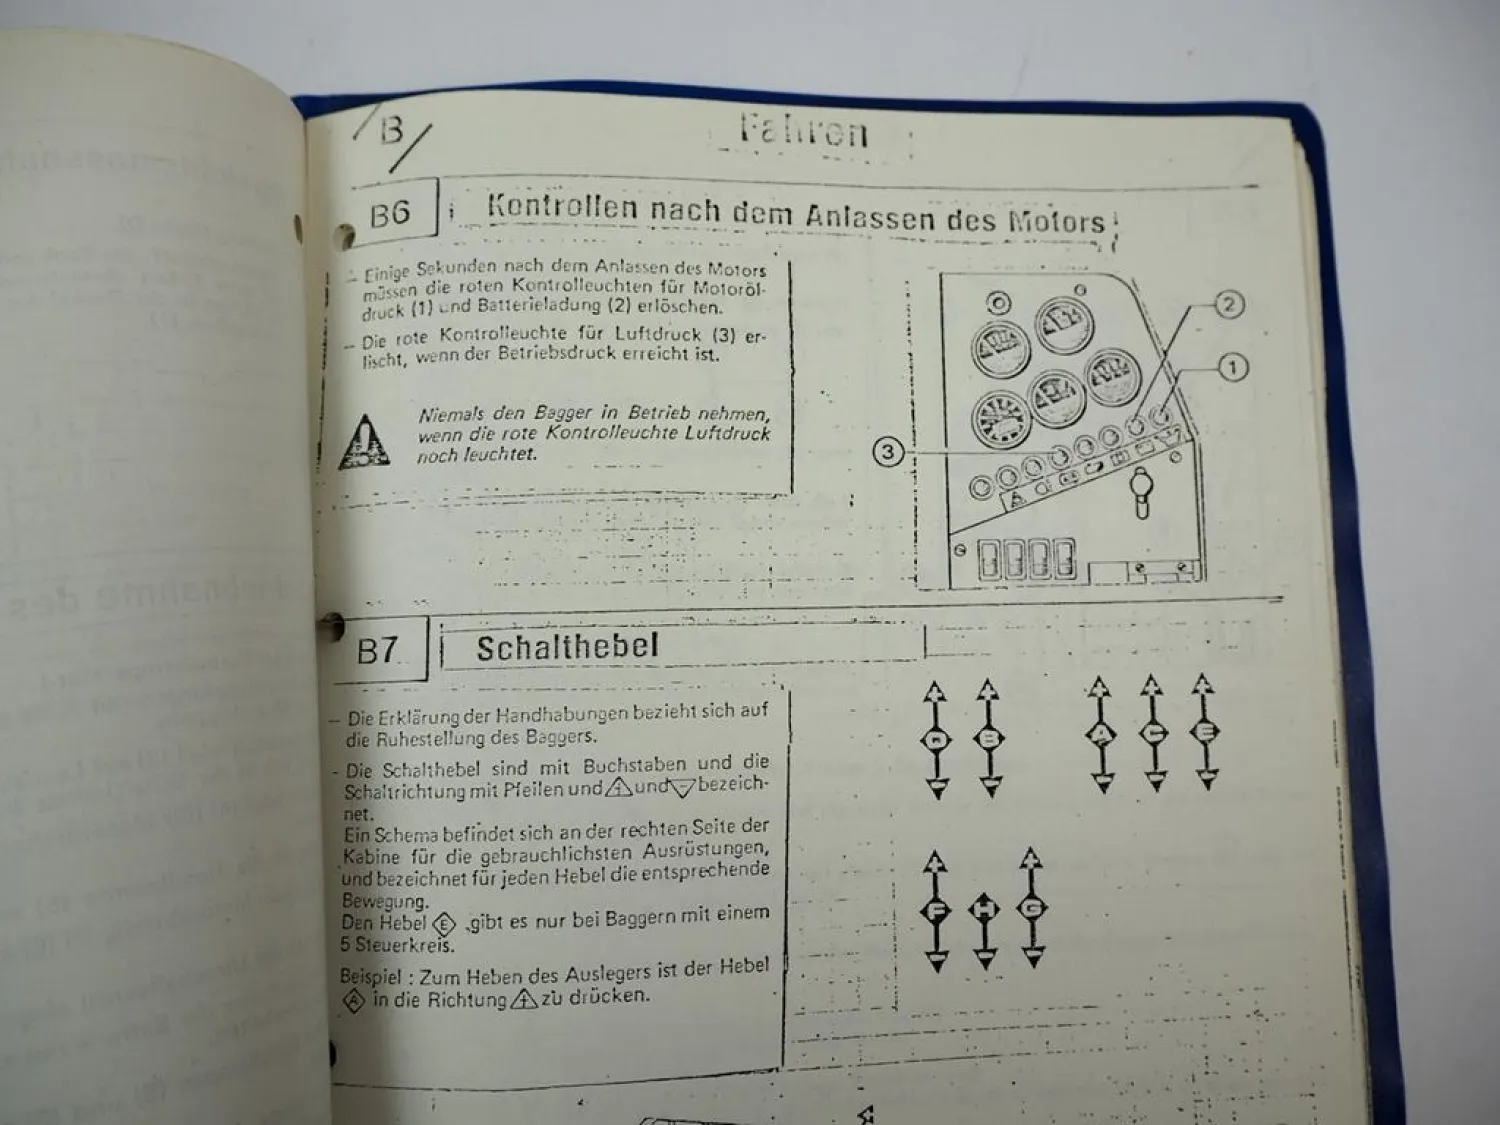 B
Fahren
B6
Kontrollen nach dem Anlassen des Motors
- Einige Sekunden nach dem Anlassen des Motors
müssen die roten Kontrolleuchten für Motoröl-
druck (1) und Batterieladung (2) erlöschen.
- Die rote Kontrolleuchte für Luftdruck (3) er-
lischt, wenn der Betriebsdruck erreicht ist.
Niemals den Bagger in Betrieb nehmen,
wenn die rote Kontrolleuchte Luftdruck
noch leuchtet.
2
1
3
B7
Schalthebel
- Die Erklärung der Handhabungen bezieht sich auf
die Ruhestellung des Baggers.
- Die Schalthebel sind mit Buchstaben und die
Schaltrichtung mit Pfeilen und + und - bezeich-
net.
Ein Schema befindet sich an der rechten Seite der
Kabine für die gebrauchlichsten Ausrüstungen,
und bezeichnet für jeden Hebel die entsprechende
Bewegung.
Den Hebel E ,gibt es nur bei Baggern mit einem
5 Steuerkreis.
Beispiel : Zum Heben des Auslegers ist der Hebel
A in die Richtung + zu drücken.
B A C E
F H G